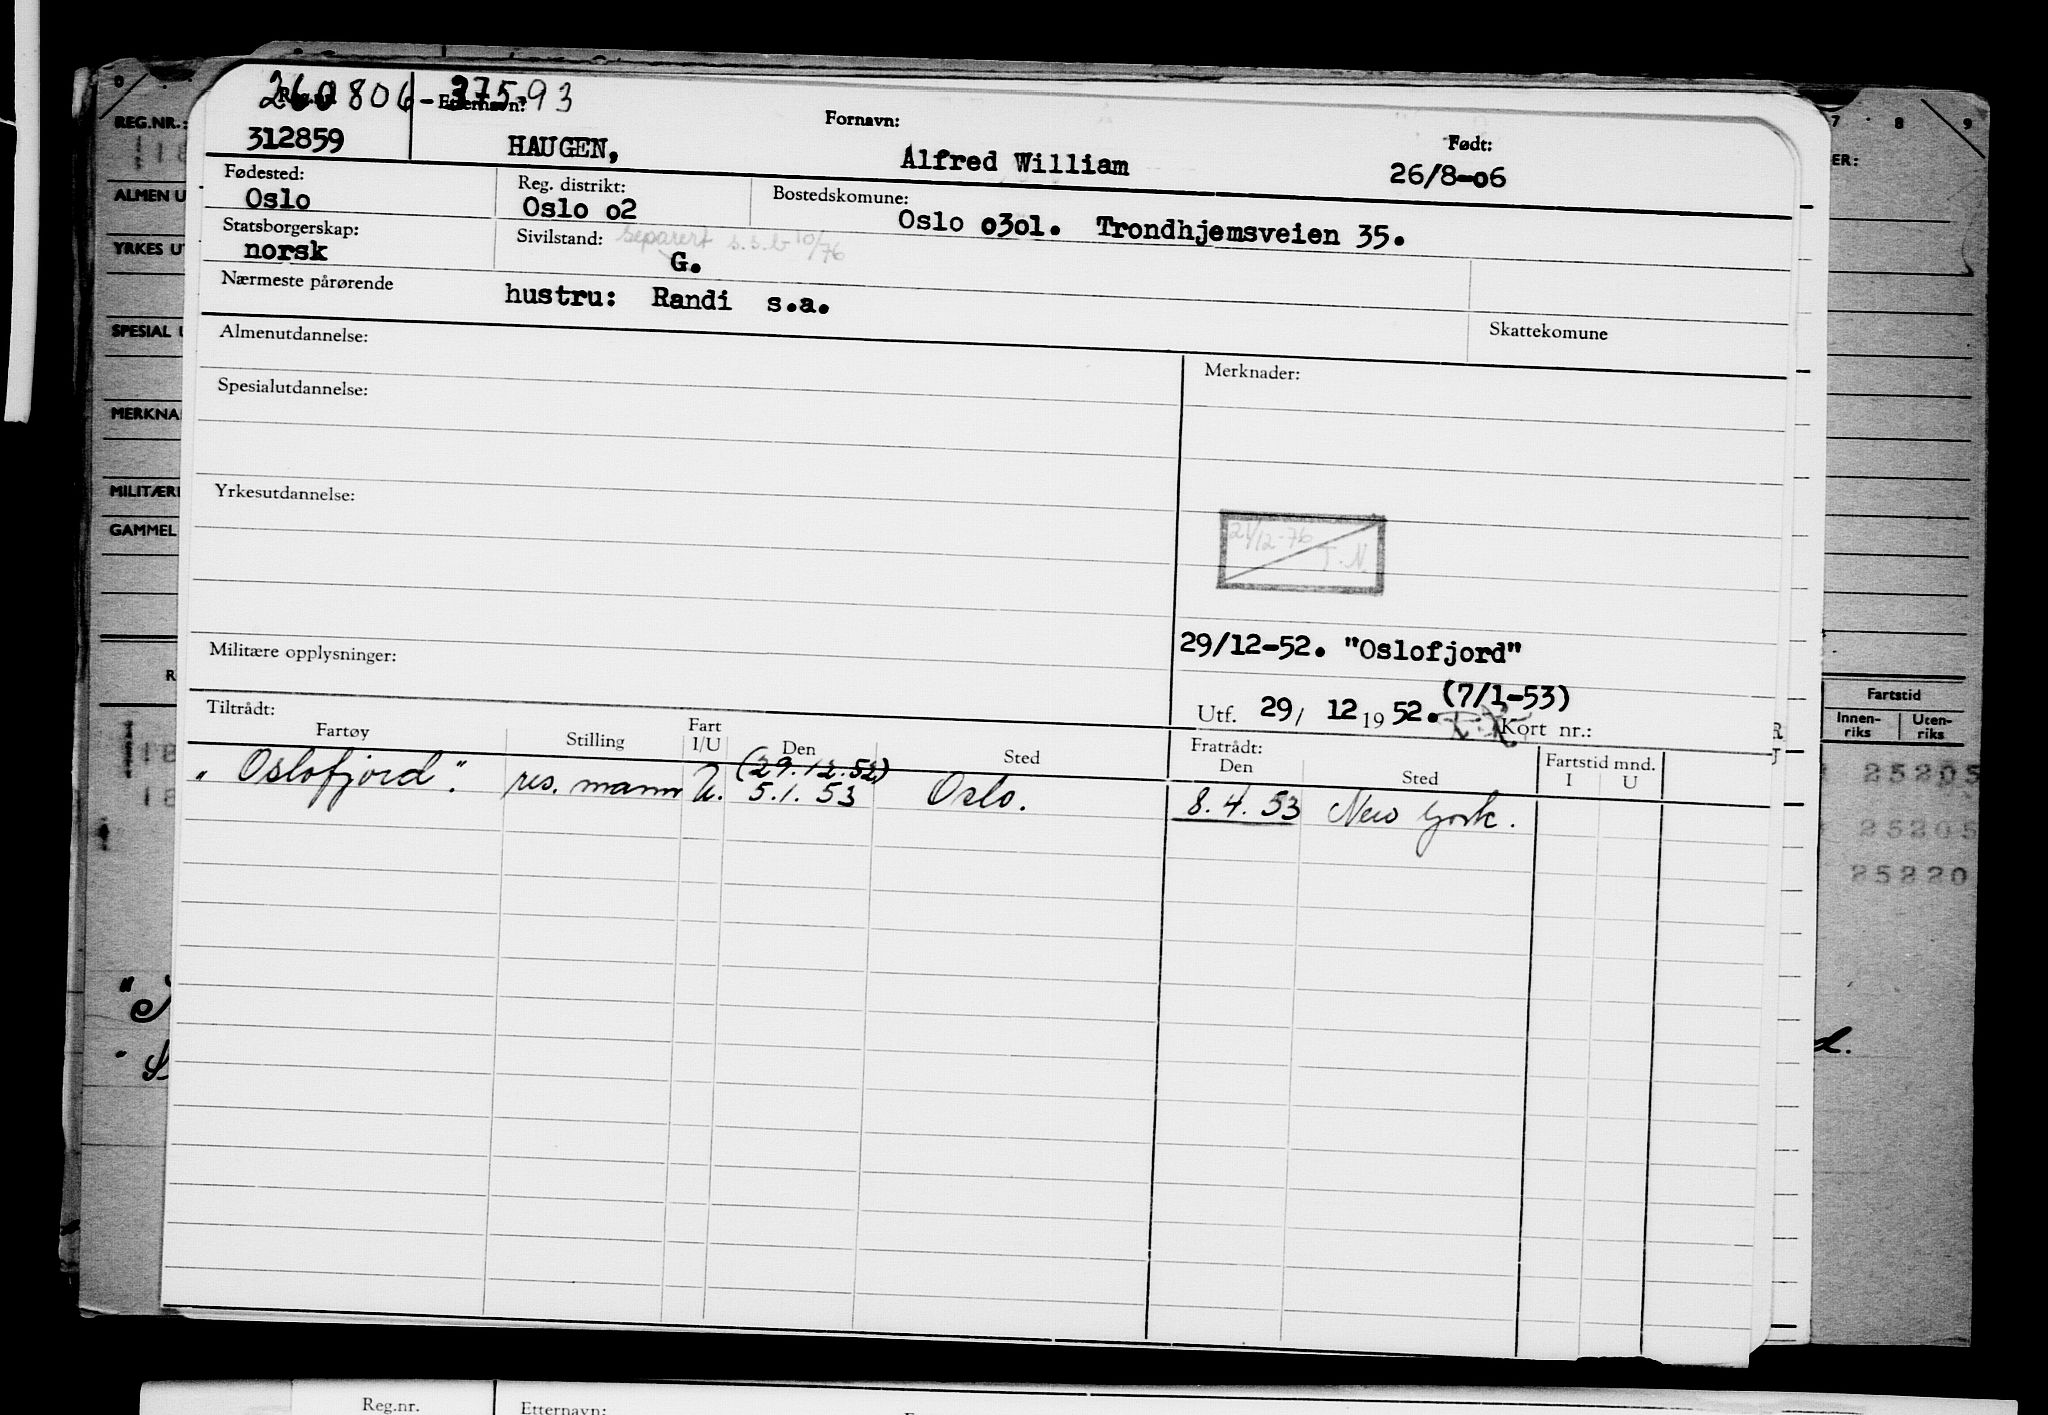 260806-37593
Reg.nr. Etternavn: Fornavn: Født:
312859 HAUGEN, Alfred William 26/8-06
Fødested: Reg. distrikt: Bostedskomune:
Oslo Oslo o2 Oslo o3o1. Trondhjemsveien 35.
Statsborgerskap: Sivilstand: separert s.s.b 10/76
norsk G.
Nærmeste pårørende hustru: Randi s.a.
Skattekomune
Almenutdannelse: Merknader:
Spesialutdannelse:
Yrkesutdannelse:
21/12-76 T.N.
29/12-52. "Oslofjord"
Militære opplysninger:
(7/1-53)
Utf. 29/ 12 1952. Kort nr.:
Tiltrådt: Fratrådt:
Fartøy Stilling Fart I/U Den Sted Den Sted Fartstid mnd. I U
(29.12.52)
"Oslofjord". res. mann U. 5.1.53 Oslo. 8.4.53 New York.
REG.NR.:
ALMEN U
YRKES UT
SPESIAL U
MERKNA
MILITÆRE
GAMMEL
7 8 9
ER:
Fartstid
Innen-riks Uten-riks
25205
25205
25220
d.
Reg.nr. Etternavn: